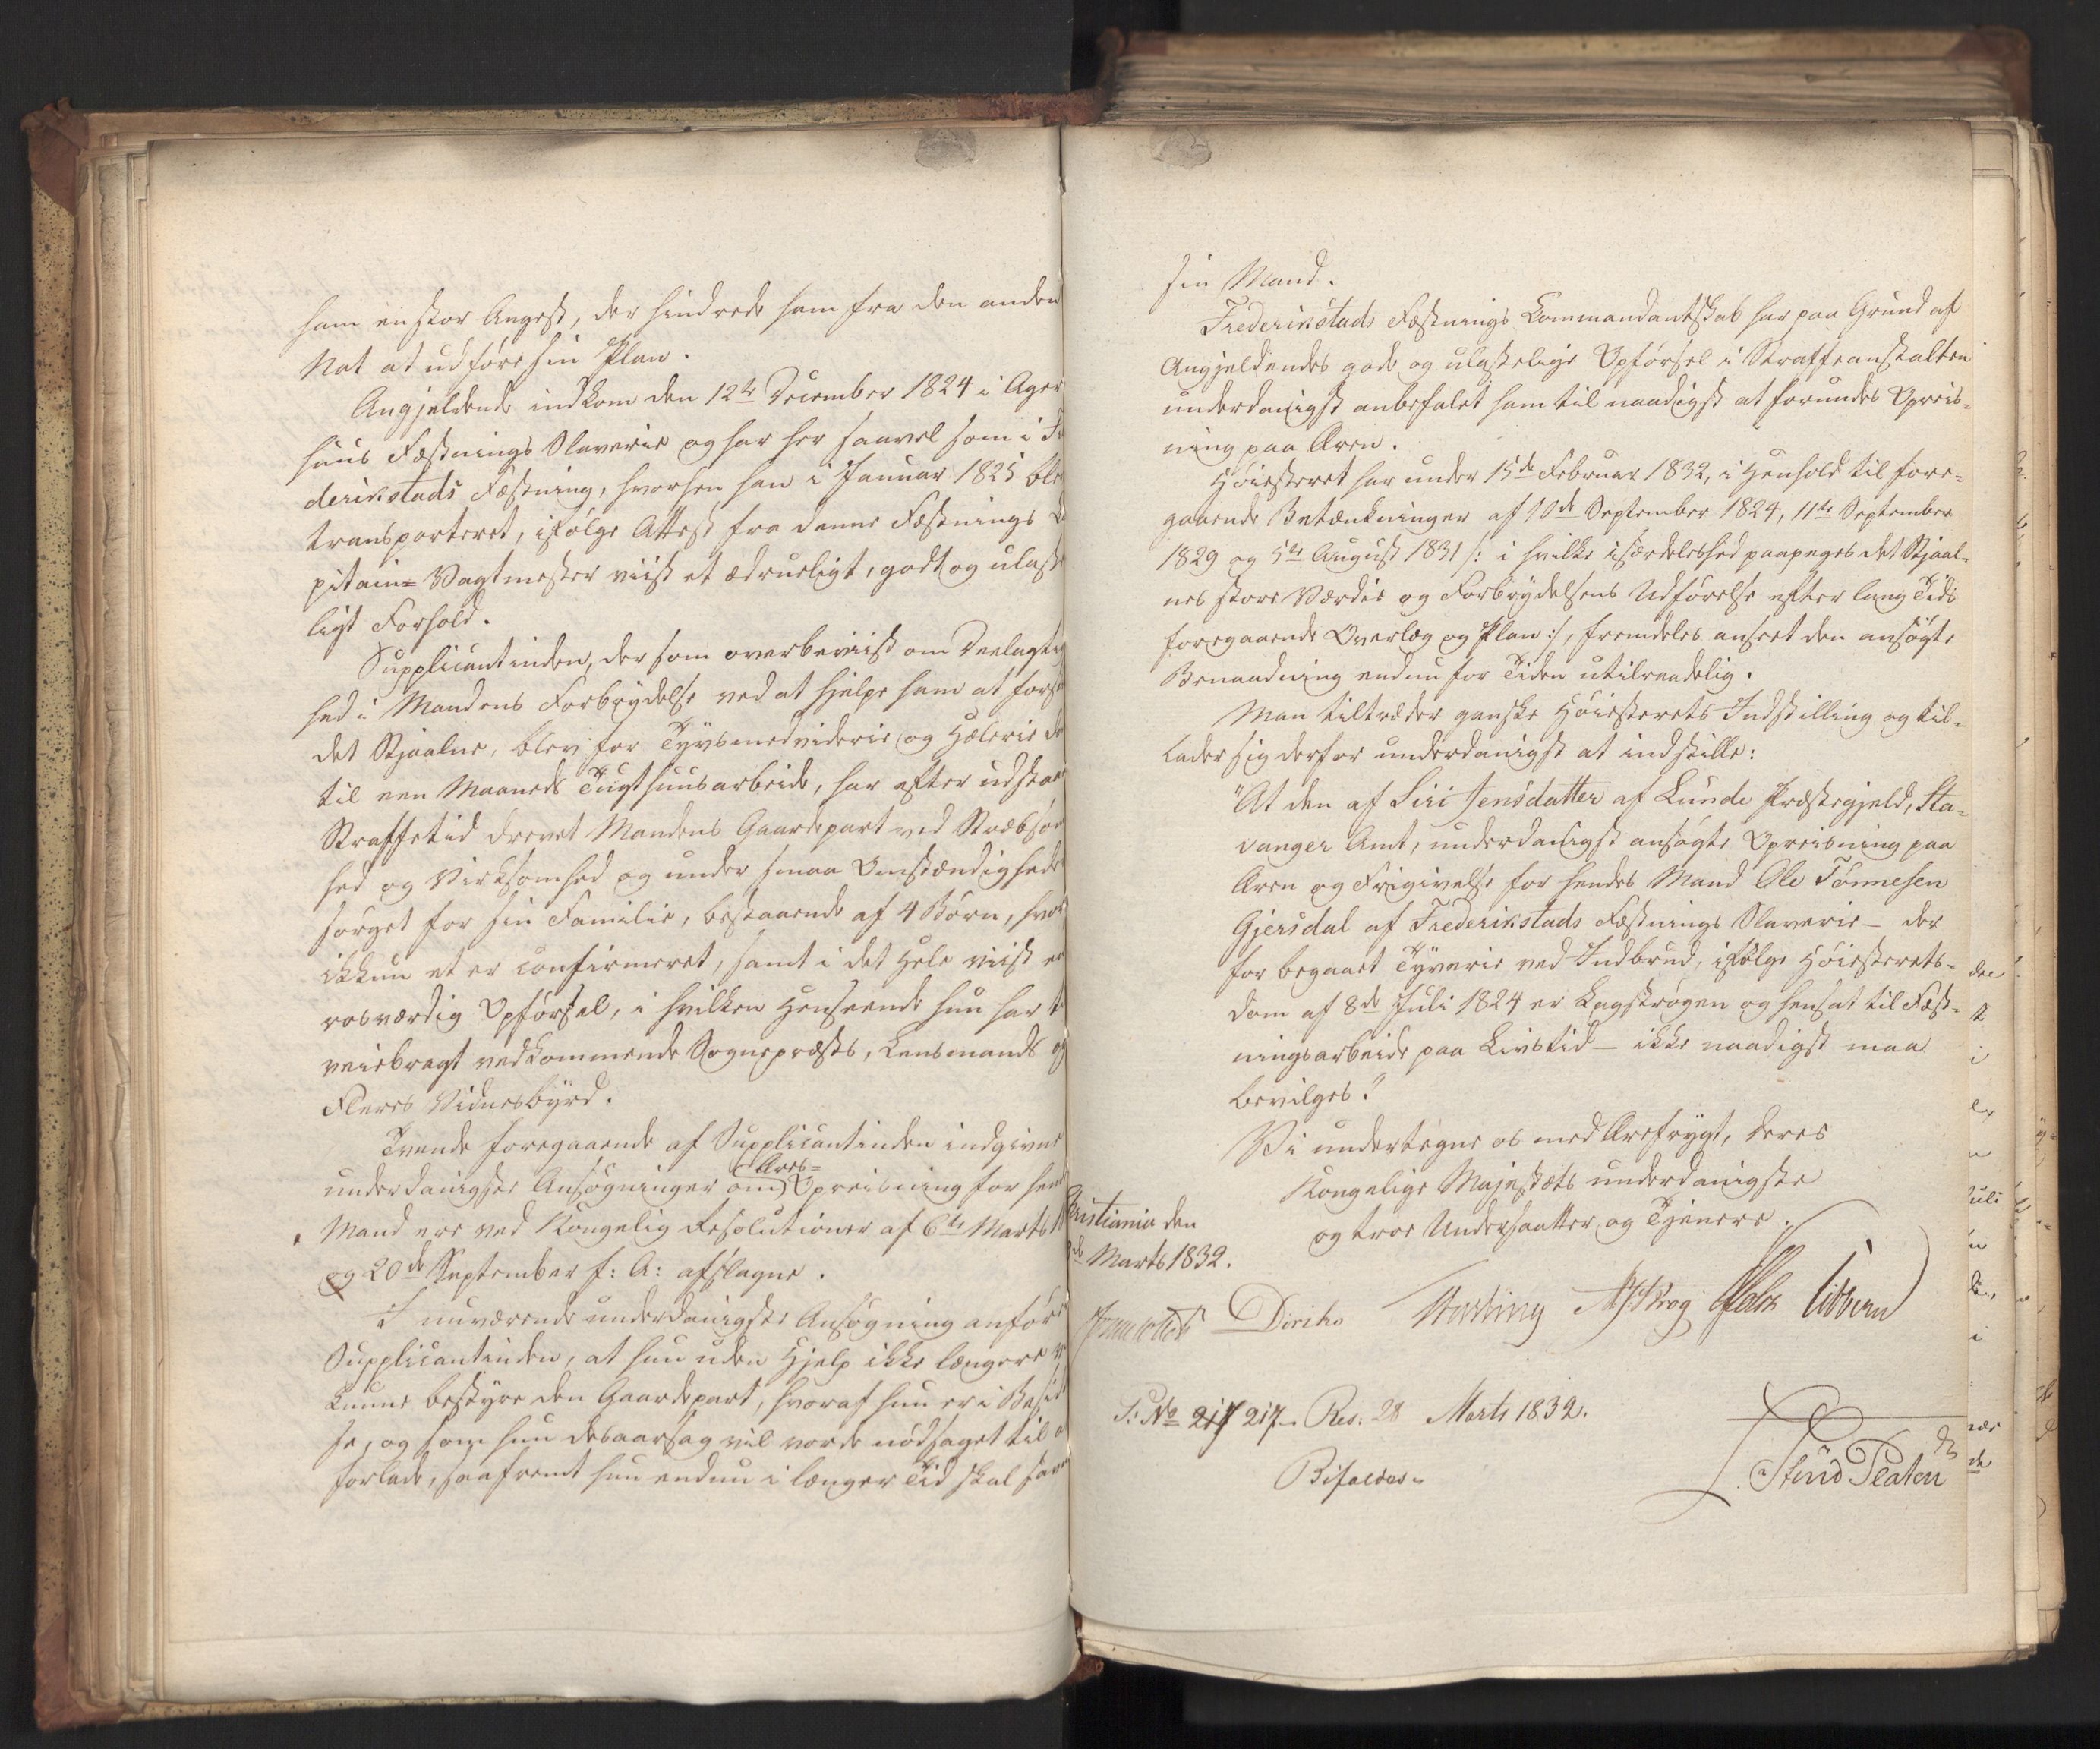 ham en stor Angest, der hindrede ham fra den anden
Nat at udføre sin Plan.
Angjeldende indkom den 12te December 1824 i Ager
huus Fæstnings Slaverie og har her saavel som i Fre
derikstads Fæstning, hvorhen han i Januar 1825 blev
transporteret, ifølge Attest fra denne Fæstnings
pitain-Vagtmester viist et ædrueligt, godt og ulaste
ligt Forhold.
Supplicantinden, der som overbeviist om Deelagtig
hed i Mandens Forbrydelse ved at hjelpe ham at
det Stjaalne, blev for Tyvsmedviderie og Hælerie
til een Maaneds Tugthuusarbeide, har efter udstaaet
Straffetid drevet Mandens Gaardepart med Stræbsom
hed og Virksomhed og under smaa Omstændigheder
sørget for sin Familie, bestaaende af 4 Børn, hvor
ikkun et er confirmeret, samt i det Hele viist en
rosværdig Opførsel, i hvilken Henseende hun har til
veiebragt vedkommende Sognepræsts, Lensmands og
Fleres Vidnesbyrd.
Tvende foregaaende af Supplicantinden indgivne
Æres-
underdanigste Ansøgninger om Opreisning for hendes
Mand ere ved Kongelig Resolutioner af 6te Marts
og 20de September f: A: afslagne.
I nuværende underdanigste Ansøgning anfører
Supplicantinden, at hun uden Hjelp ikke længere
kunne bestyre den Gaardepart, hvoraf hun er i Besid
se, og som hun desaarsag vil vorde nødsaget til at
forlade, saafremt hun endnu i længer Tid skal savne
sin Mand.
Frederikstads Fæstnings Commandantskab har paa Grund af
Angjeldendes gode og ulastelige Opførsel i Straffeanstalten
underdanigst anbefalet ham til naadigst at forundes Opreis-
ning paa Æren.
Høiesteret har under 15de Februar 1832, i Henhold til fore-
gaaende Betænkninger af 10de September 1824, 11te September
1829 og 5te August 1831 /: i hvilke isærdeleshed paapeges det Stjaal-
nes store Værdie og Forbrydelsens Udførelse efter lang Tids
foregaaende Overlæg og Plan :/, fremdeles anseet den ansøgte
Benaadning endnu for Tiden utilraadelig.
Man tiltræder ganske Høiesterets Indstilling og til-
lader sig derfor underdanigst at indstille:
"At den af Siri Jensdatter af Lunde Præstegjeld, Sta-
vanger Amt, underdanigst ansøgte Opreisning paa
Æren og Frigivelse for hendes Mand Ole Tønnesen
Gjersdal af Frederikstads Fæstnings Slaverie – der
for begaaet Tyverie ved Indbrud, ifølge Høiesterets-
dom af 8de Juli 1824 er kagstrøgen og hensat til Fæst-
ningsarbeide paa Livstid – ikke naadigst maa
bevilges."
Vi undertegne os med Ærefrygt, Deres
Kongelige Majestæts underdanigste
og troe Undersaatter og Tjenere.
Christiania den
Marts 1832.
Diriks Motzfeldt Krog Holst Sibbern
S: No 217 217. Res: 28 Marts 1832.
Bifaldes.